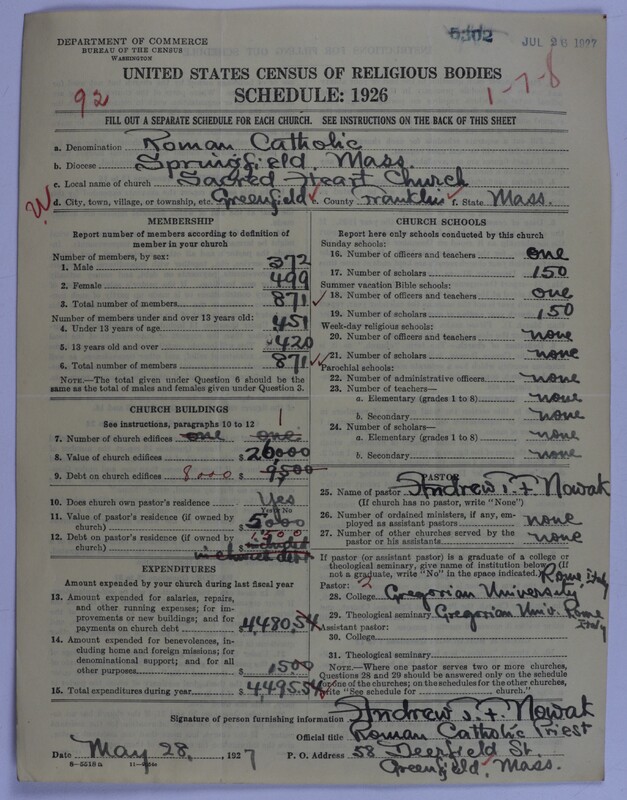 DEPARTMENT OF COMMERCE
BUREAU OF THE CENSUS
WASHINGTON
JUL 26 1927
UNITED STATES CENSUS OF RELIGIOUS BODIES
SCHEDULE: 1926
92
1-7-8
FILL OUT A SEPARATE SCHEDULE FOR EACH CHURCH. SEE INSTRUCTIONS ON THE BACK OF THIS SHEET
a. Denomination Roman Catholic
b. Diocese Springfield, Mass.
c. Local name of church Sacred Heart Church
d. City, town, village, or township, etc. Greenfield e. County Franklin f. State Mass.
MEMBERSHIP
Report number of members according to definition of
member in your church
Number of members, by sex:
1. Male 372
2. Female 499
3. Total number of members 871
Number of members under and over 13 years old:
4. Under 13 years of age 451
5. 13 years old and over 420
6. Total number of members 871
NOTE.—The total given under Question 6 should be the
same as the total of males and females given under Question 3.
CHURCH BUILDINGS
See instructions, paragraphs 10 to 12
1
7. Number of church edifices one one
8. Value of church edifices $ 26,000
9. Debt on church edifices 8000 $ 9,500
10. Does church own pastor's residence Yes
Yes or No
11. Value of pastor's residence (if owned by
church) $ 5,000
12. Debt on pastor's residence (if owned by
church) 1,500 $ included
in church debt
EXPENDITURES
Amount expended by your church during last fiscal year
13. Amount expended for salaries, repairs,
and other running expenses; for im-
provements or new buildings; and for
payments on church debt $ 4,480.54
14. Amount expended for benevolences, in-
cluding home and foreign missions; for
denominational support; and for all
other purposes $ 15.00
15. Total expenditures during year $ 4,495.54
CHURCH SCHOOLS
Report here only schools conducted by this church
Sunday schools:
16. Number of officers and teachers one
17. Number of scholars 150
Summer vacation Bible schools:
18. Number of officers and teachers one
19. Number of scholars 150
Week-day religious schools:
20. Number of officers and teachers none
21. Number of scholars none
Parochial schools:
22. Number of administrative officers none
23. Number of teachers—
a. Elementary (grades 1 to 8) none
b. Secondary none
24. Number of scholars—
a. Elementary (grades 1 to 8) none
b. Secondary none
PASTOR
25. Name of pastor Andrew T. F. Nowak
(If church has no pastor, write "None")
26. Number of ordained ministers, if any, em-
ployed as assistant pastors none
27. Number of other churches served by the
pastor or his assistants none
If pastor (or assistant pastor) is a graduate of a college or
theological seminary, give name of institution below. (If
not a graduate, write "No" in the space indicated.)
Pastor: 2 Rome, Italy
28. College Gregorian University
29. Theological seminary Gregorian Univ. Rome
Italy
Assistant pastor:
30. College
31. Theological seminary
NOTE.—Where one pastor serves two or more churches,
Questions 28 and 29 should be answered only on the schedule
for one of the churches; on the schedules for the other churches,
write "See schedule for church."
Signature of person furnishing information Andrew T. F. Nowak
Official title Roman Catholic Priest
Date May 28, 1927
P. O. Address 58 Deerfield St.
Greenfield, Mass.
8—5518a